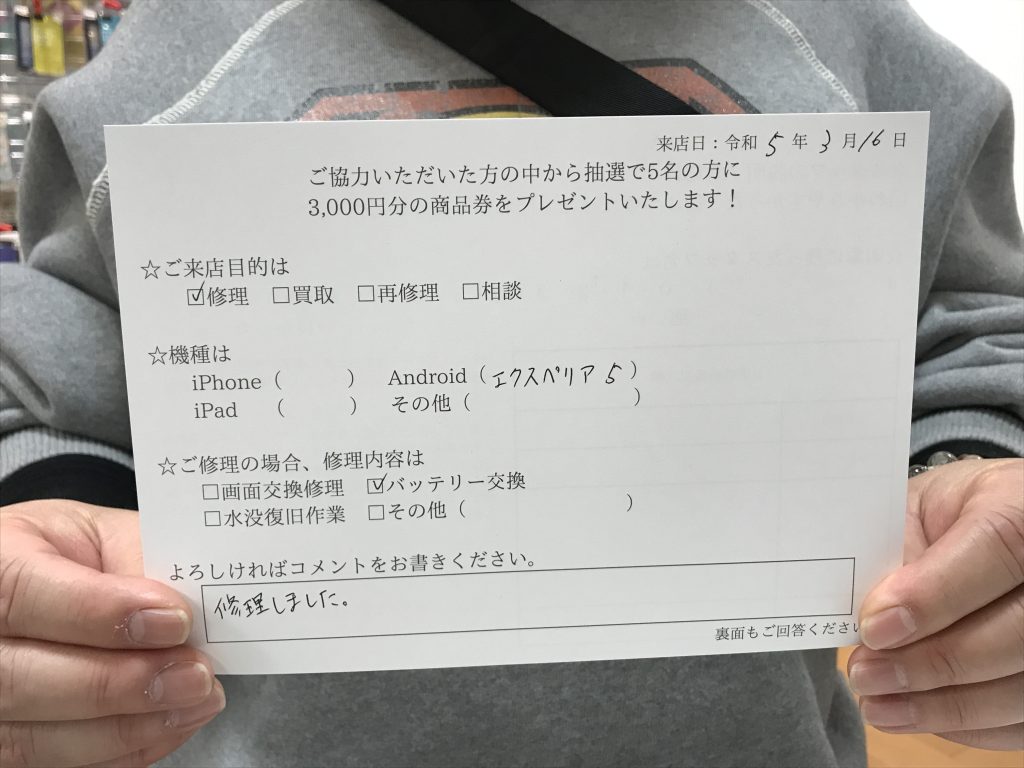 来店日：令和 5 年 3 月 16 日
ご協力いただいた方の中から抽選で5名の方に
3,000円分の商品券をプレゼントいたします！
☆ご来店目的は
☑修理 □買取 □再修理 □相談
☆機種は
iPhone（　　　） Android（エクスペリア 5）
iPad　（　　　） その他（　　　　　　　　）
☆ご修理の場合、修理内容は
□画面交換修理 ☑バッテリー交換
□水没復旧作業 □その他（　　　　　　　　）
よろしければコメントをお書きください。
修理しました。
裏面もご回答ください